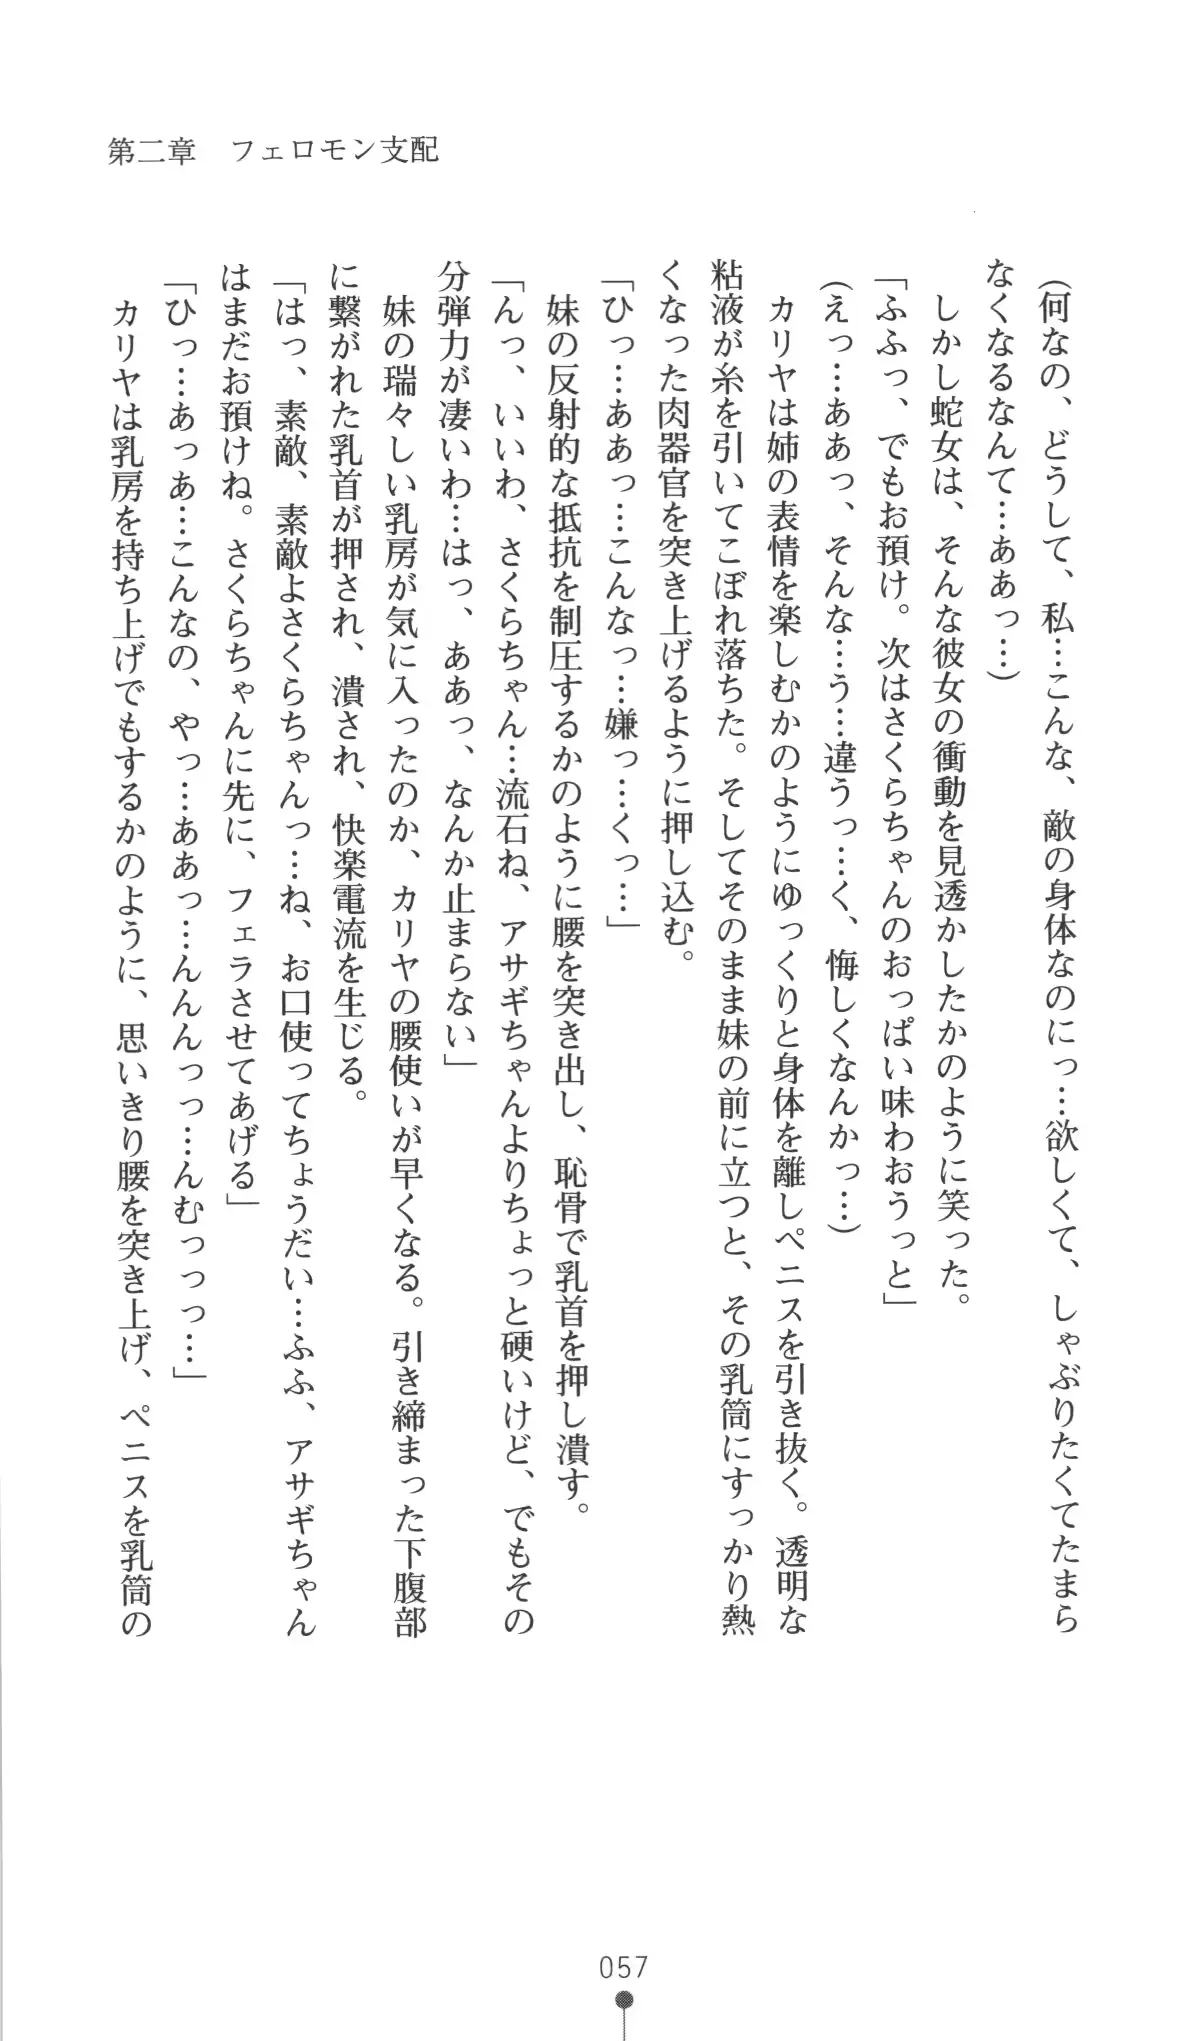 第二章　フェロモン支配
(何なの、どうして、私…こんな、敵の身体なのにっ…欲しくて、しゃぶりたくてたまら
なくなるなんて…ああっ…)
　しかし蛇女は、そんな彼女の衝動を見透かしたかのように笑った。
「ふふっ、でもお預け。次はさくらちゃんのおっぱい味わおうっと」
(えっ…ああっ、そんな…う…違うっ…く、悔しくなんかっ…)
　カリヤは姉の表情を楽しむかのようにゆっくりと身体を離しペニスを引き抜く。透明な
粘液が糸を引いてこぼれ落ちた。そしてそのまま妹の前に立つと、その乳筒にすっかり熱
くなった肉器官を突き上げるように押し込む。
「ひっ…ああっ…こんなっ…嫌っ…くっ…」
　妹の反射的な抵抗を制圧するかのように腰を突き出し、恥骨で乳首を押し潰す。
「んっ、いいわ、さくらちゃん…流石ね、アサギちゃんよりちょっと硬いけど、でもその
分弾力が凄いわ…はっ、ああっ、なんか止まらない」
　妹の瑞々しい乳房が気に入ったのか、カリヤの腰使いが早くなる。引き締まった下腹部
に繋がれた乳首が押され、潰され、快楽電流を生じる。
「はっ、素敵、素敵よさくらちゃんっ…ね、お口使ってちょうだい…ふふ、アサギちゃん
はまだお預けね。さくらちゃんに先に、フェラさせてあげる」
「ひっ…あっあ…こんなの、やっ…ああっ…んんんっっ…んむっっっ…」
　カリヤは乳房を持ち上げでもするかのように、思いきり腰を突き上げ、ペニスを乳筒の
057